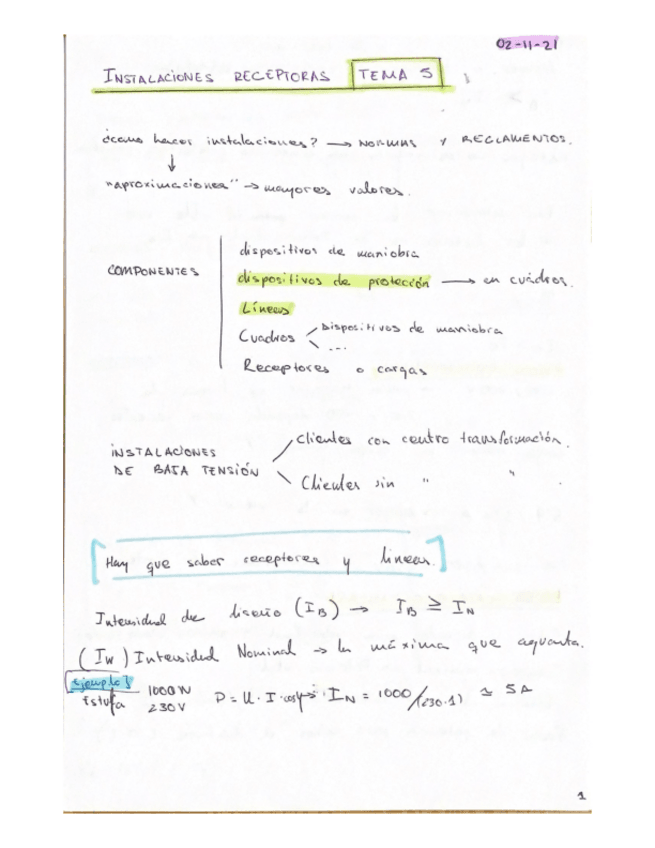 02-11-21
INSTALACIONES RECEPTORAS TEMA 5
¿como hacer instalaciones? → NORMAS Y REGLAMENTOS.
↓
"aproximaciones" → mayores valores.
dispositivos de maniobra
COMPONENTES
dispositivos de protección → en cuadros.
Líneas
Cuadros Dispositivos de maniobra
...
Receptores o cargas
INSTALACIONES DE BAJA TENSIÓN
Clientes con centro transformación.
Clientes sin " "
Hay que saber receptores y lineas.
Intensidad de diseño (IB) → IB ≥ IN
(IN) Intensidad Nominal → la máxima que aguanta.
Ejemplo
Estufa 1000W 230V P = U · I · cosφ → IN = 1000/(230·1) ≃ 5A
1